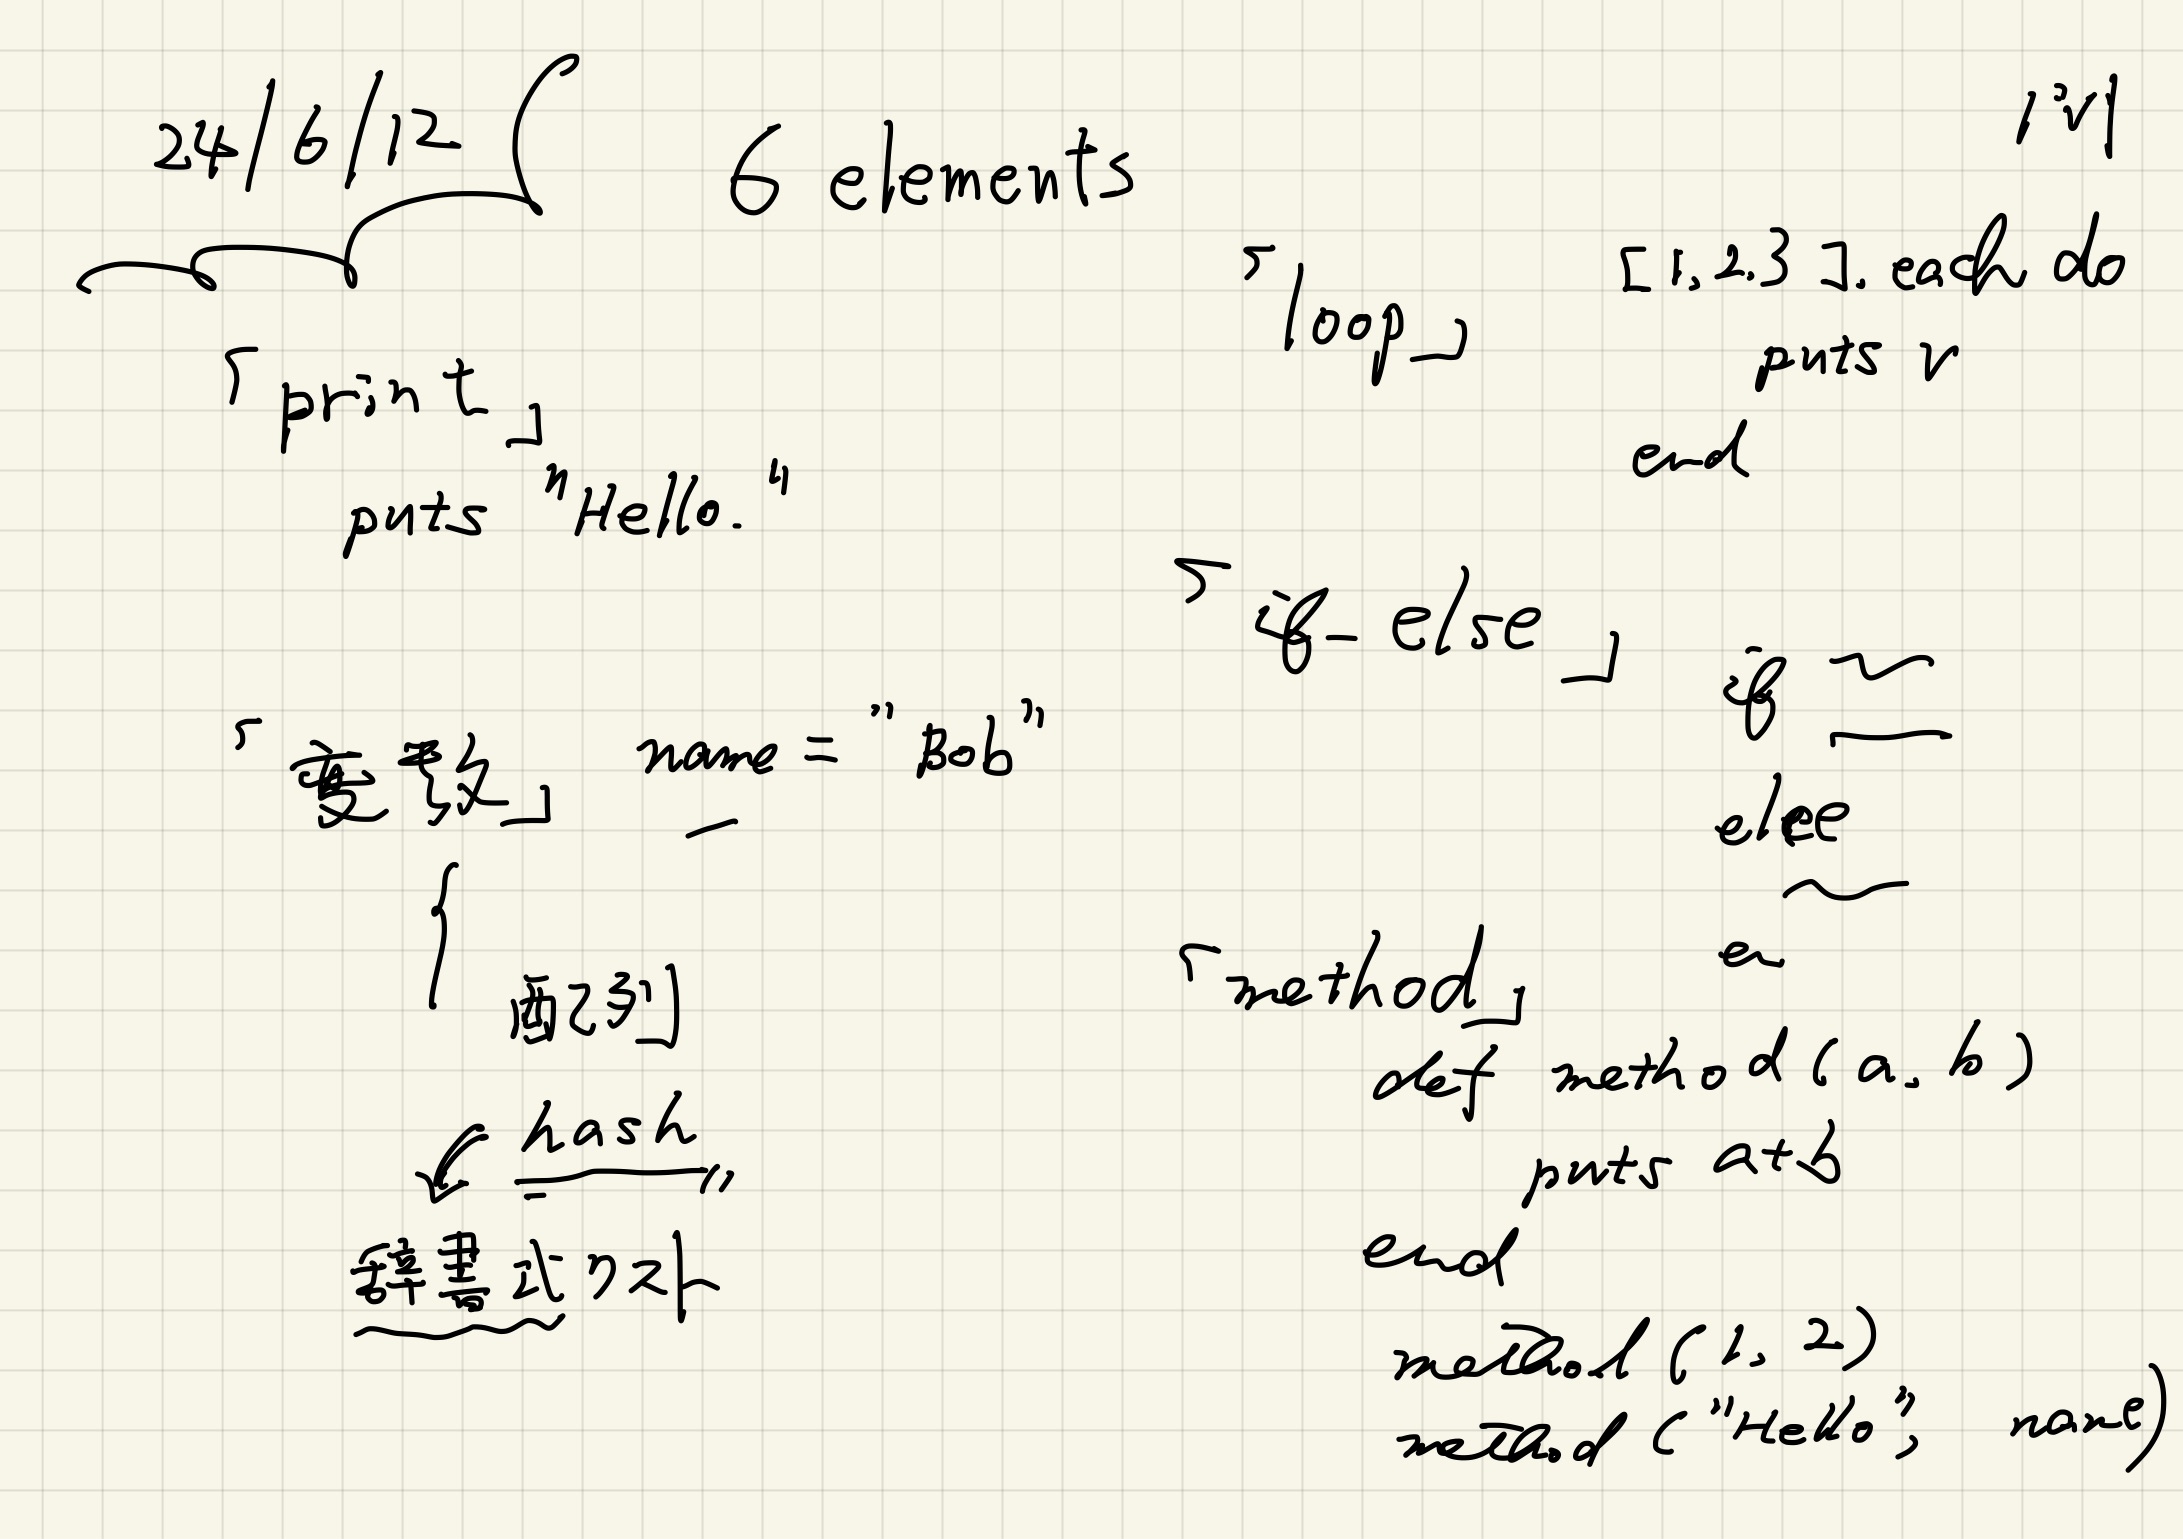 24/6/12
6 elements
「print」
puts "Hello."
「変数」 name = "Bob"
配列
hash
辞書式リスト
「loop」
|v|
[1,2,3].each do
puts v
end
「if-else」
if
else
en
「method」
def method(a,b)
puts a+b
end
method(1,2)
method("Hello", name)